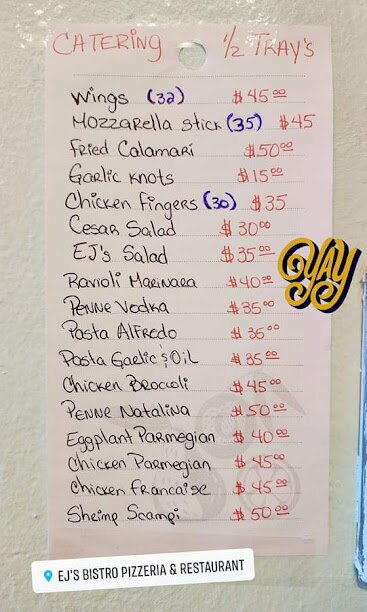 CATERING 1/2 TRAY'S
Wings (32) $45.00
Mozzarella Stick (35) $45
Fried Calamari $50.00
Garlic Knots $15.00
Chicken Fingers (30) $35
Cesar Salad $30.00
EJ's Salad $35.00
YAY
Ravioli Marinara $40.00
Penne Vodka $35.00
Pasta Alfredo $35.00
Pasta Garlic & Oil $35.00
Chicken Broccoli $45.00
Penne Natalina $50.00
Eggplant Parmegian $40.00
Chicken Parmegian $45.00
Chicken Francaise $45.00
Shrimp Scampi $50.00
EJ'S BISTRO PIZZERIA & RESTAURANT